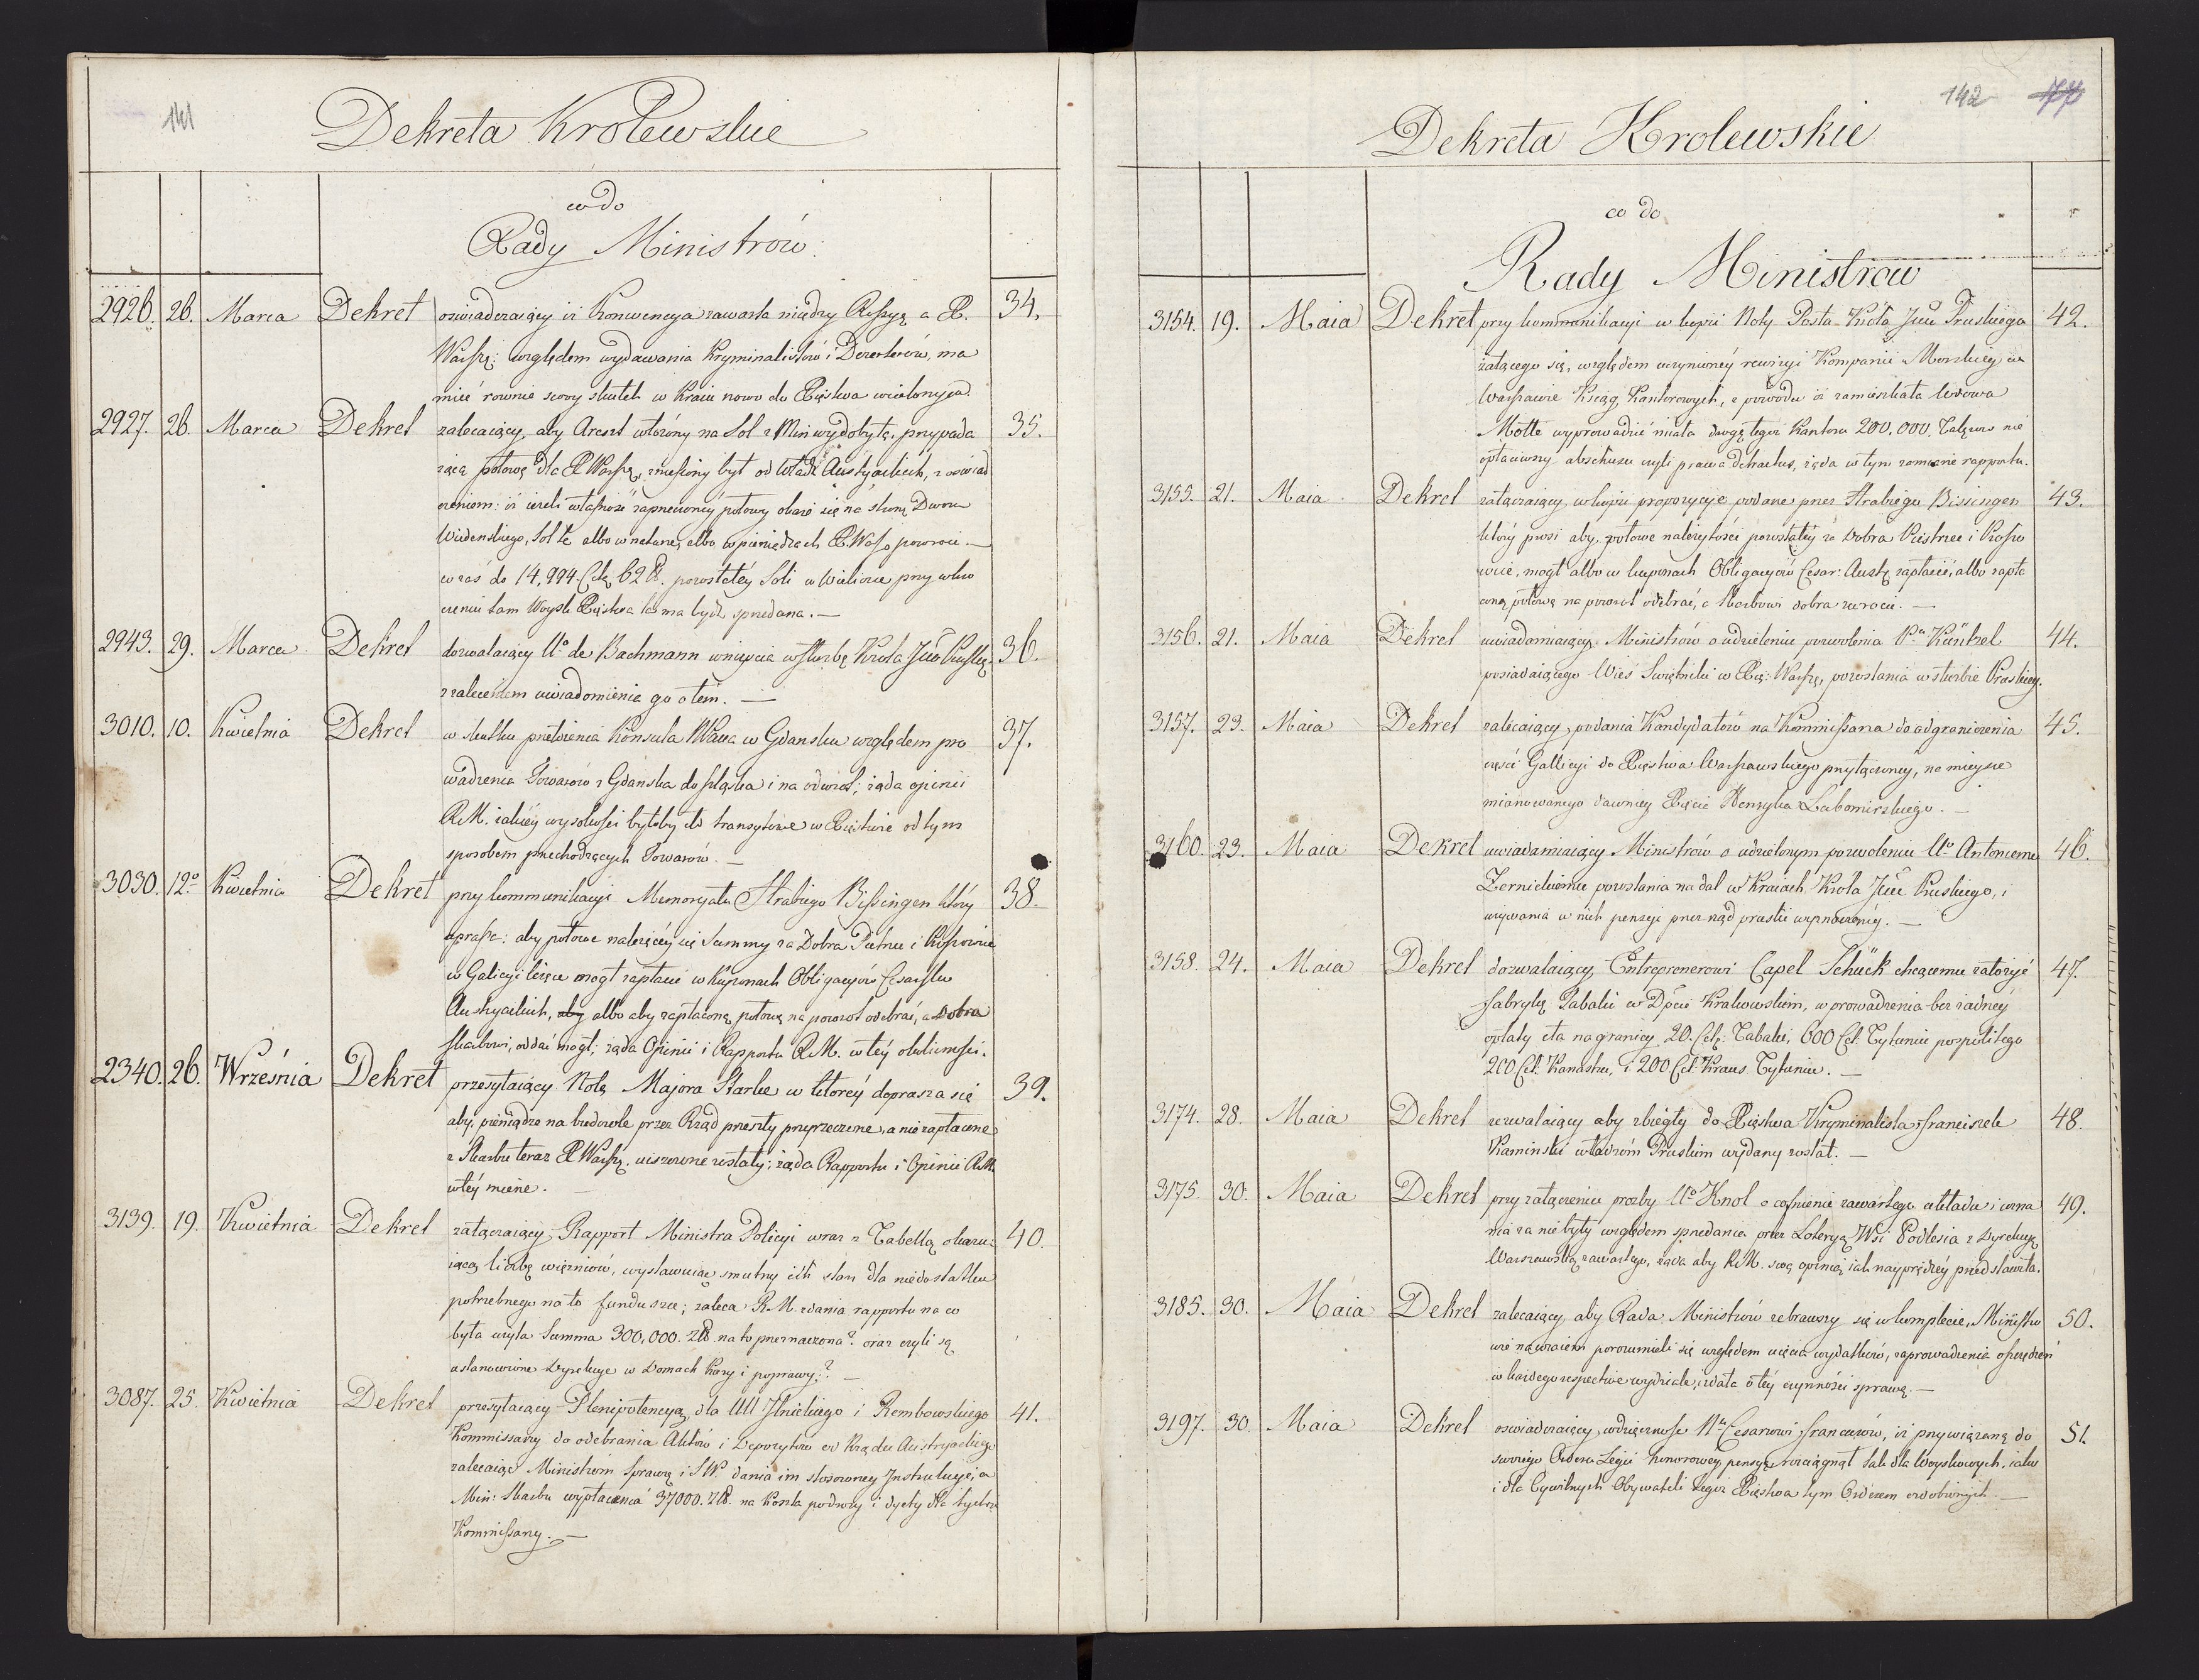 141
Dekreta Krolewskie
co do
Rady Ministrów.
2926. 26. Marca Dekret oswiadczaiący iż Konwencya zawarta między Rossyą a X.
Warszą: względem wydawania Kryminalistów i Dezerterów, ma
mieć rownie swoy skutek w Kraiu nowo do Xięstwa wcielonym.
2927. 26. Marca Dekret zalecaiący, aby Areszt włożony na Sol z Min wydobytą, przypada
iącą połową dla X Warszą, zniesiony był od Władz Austryackich, z oswiad
czeniem: iż ieżeli własność zaprzeczoney połowy okaże się na stronę Dworu
Wiedenskiego, Sol ta albo w naturze, albo w pieniądzach X. Wa powroci. —
co zaś do 14,994 Cet. 62 pozostałéy Soli w Wieliczce przy wkro
czeniu tam Woysk Xięstwa ta ma bydź sprzedana. —
2943. 29. Marca Dekret dozwalaiący Uo de Bachmann wniyscia w służbę Krola Jmć Pruskie
z zaleceniem uwiadomienia go o tém. —
3010. 10. Kwietnia Dekret w skutku przełożenia Konsula w Gdansku względem pro
wadzenia Towarów z Gdańska do Szląska i na odwrot; żąda opinii
R.M. iakiéy wysokosci byłoby cło transytowe w Xięstwie od tym
sposobem przechodzących Towarów. —
3030. 12o Kwietnia Dekret przy kommunikacyi Memoryału Hrabiego Bissingen który
uprasza: aby połowę należącéy się Summy za Dobra i
w Galicyi leżące mogł zapłacić w Kuponach Obligacyów Cesarsko
Austryackich, aby albo aby zapłaconą połowę na powrot odebrać, a dobra
Skarbowi, oddać mogł; żąda Opinii i Rapportu R.M. w téy okolicznosci.
2340. 26. Września Dekret przesyłaiący Notę Majora Starke w którey doprasza się
aby, pieniądze na budowle przez Rząd przeszły przyrzeczone, a nie zapłacone
z Skarbu teraz X Warszą. uiszczone zostały; żąda Rapportu i Opinii R.M.
w téy mierze. —
3139. 19. Kwietnia Dekret załączaiący Rapport Ministra Policyi wraz z Tabellą okazu
iącą liczbę więzniów, wystawuiąc smutny ich stan dla niedostatku
potrzebnego na to funduszu; zaleca R.M. zdania rapportu na co
była użyta Summa 300,000. zł. na to przeznaczona? oraz czyli są
ustanowione Dyrekcye w Domach Kary i poprawy? —
3087. 25. Kwietnia Dekret przesyłaiący Plenipotencyą, dla UU Ilnickiego i Rembowskiego
Kommissarzy do odebrania Aktów i Depozytów od Rządu Austryackiego
zalecaiąc Ministrom Spraw i S W. dania im stosowney Instrukcyi, a
Min: Skarbu wypłacenia 37000. zł. na koszta podroży i dyety dla tychże
Kommissarzy. —
34.
35.
36.
37.
38.
39.
40.
41.
142 77
Dekreta Krolewskie
co do
Rady Ministrów
3154. 19. Maia Dekret przy kommunikacyi w kopii Noty Posła Króla Jmć Pruskiego 42.
żalącego się, względem uczynionéy rewizyi Kompanii Morskiey w
Warszawie Ksiąg Kantorowych, z powodu iż zamieszkała Wdowa
Motte wyprowadzić miała drogą tegoż Kantoru 200,000. Talarów nie
opłaciwszy abschussu czyli prawa detractus, żąda w tym zamiarze rapportu.
3155. 21. Maia Dekret załączaiący, w kopii propozycye podane przez Hrabiego Bissingen 43.
który prosi aby, połowę należytości pozostałéy za Dobra i
mogł albo w kuponach Obligacyów Cesar: Aust: zapłacić, albo zapła
coną połowę na powrot odebrać, a Skarbowi dobra zwrocić. —
3156. 21. Maia Dekret uwiadamiaiący Ministrów o udzieleniu pozwolenia Pu Künkel 44.
posiadaiącego Wieś w Xię: Warszą, pozostania w służbie Pruskiey.
3157. 23. Maia Dekret zalecaiący podania Kandydatów na Kommissarza do odgraniczenia 45.
części Gallicyi do Xięstwa Warszawskiego przyłączoney, na mieysce
mianowanego dawniey Xięcia Henryka Lubomirskiego. —
3160. 23. Maia Dekret uwiadamiaiący Ministrów o udzielonym pozwoleniu Uo Antoniemu 46.
Zernickiemu pozostania na dal w Kraiach Krola Jmć Pruskiego, i
używania w nich pensyi przez rząd pruski wyznaczonéy. —
3158. 24. Maia Dekret dozwalaiący Entreprenerowi Capel Schück chcącemu założyć 47.
fabrykę Tabaki w Dpcie Krakowskim, wprowadzenia bez żadnéy
opłaty cła na granicy 20. Cet. Tabaki, 600 Cet. Tytuniu pospolitego
200 Cet. Kanastru, i 200 Cet. Kraus Tytuniu. —
3174. 28. Maia Dekret zezwalaiący aby zbiegły do Xięstwa Kryminalista Franciszek 48.
Kaminski władzóm Pruskim wydany został. —
3175. 30. Maia Dekret przy załączeniu prozby Uo Knol o cofnienie zawartego układu i uzna 49.
nia za nie były względem sprzedania przez Loteryą Wsi Podlesia z Dyrekcyą
Warszawską zawartego, żąda aby R.M. swą opinią iak nayprędzéy przedstawiła.
3185. 30. Maia Dekret zalecaiący aby Rada Ministrów zebrawszy się w komplecie, Ministro 50.
wie nawzaiem porozumieli się względem ucięcia wydatków, zaprowadzenia oszczędzeń
w każdego respective wydziale, zdała o téy czynności sprawę. —
3197. 30 Maia Dekret oswiadczaiący wdzięcznosc Nu Cesarzowi Francuzów, iż przywiązaną do 51.
swoiego Orderu Legii honorowey, pensyą rozciągnął tak dla Woyskowych, iako
i dla Cywilnych Obywateli tegoż Xięstwa tym Orderem ozdobionych. —